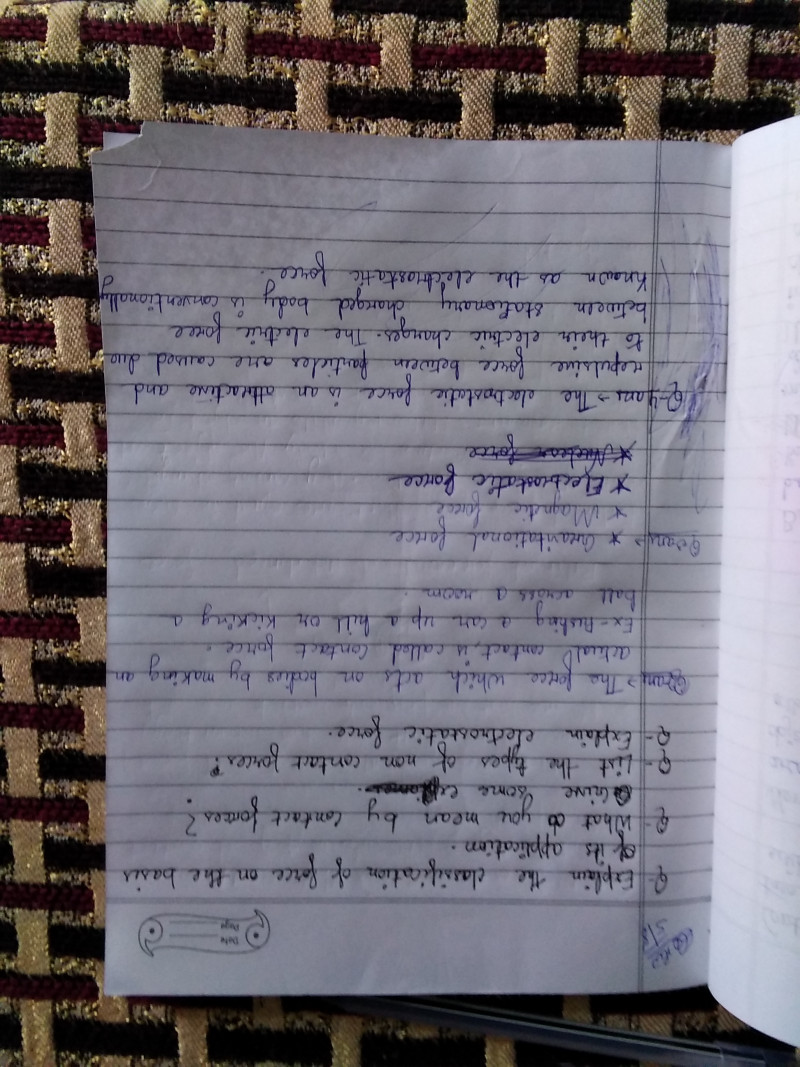 Date
Page
Q- Explain the classification of force on the basis
of its application.
Q- What do you mean by contact forces?
Give some
Q- List the types of non contact forces?
Q- Explain electrostatic force.
Q2 ans → The force which acts on bodies by making an
actual contact, is called contact force.
Ex- Pushing a car up a hill or kicking a
ball across a room.
Q3 ans → * Gravitational force
* Magnetic force
* Electrostatic force
* Nuclear force
Q-4 ans → The electrostatic force is an attractive and
repulsive force between particles are caused due
to their electric charges. The electric force
between stationary charged body is conventionally
known as the electrostatic force.